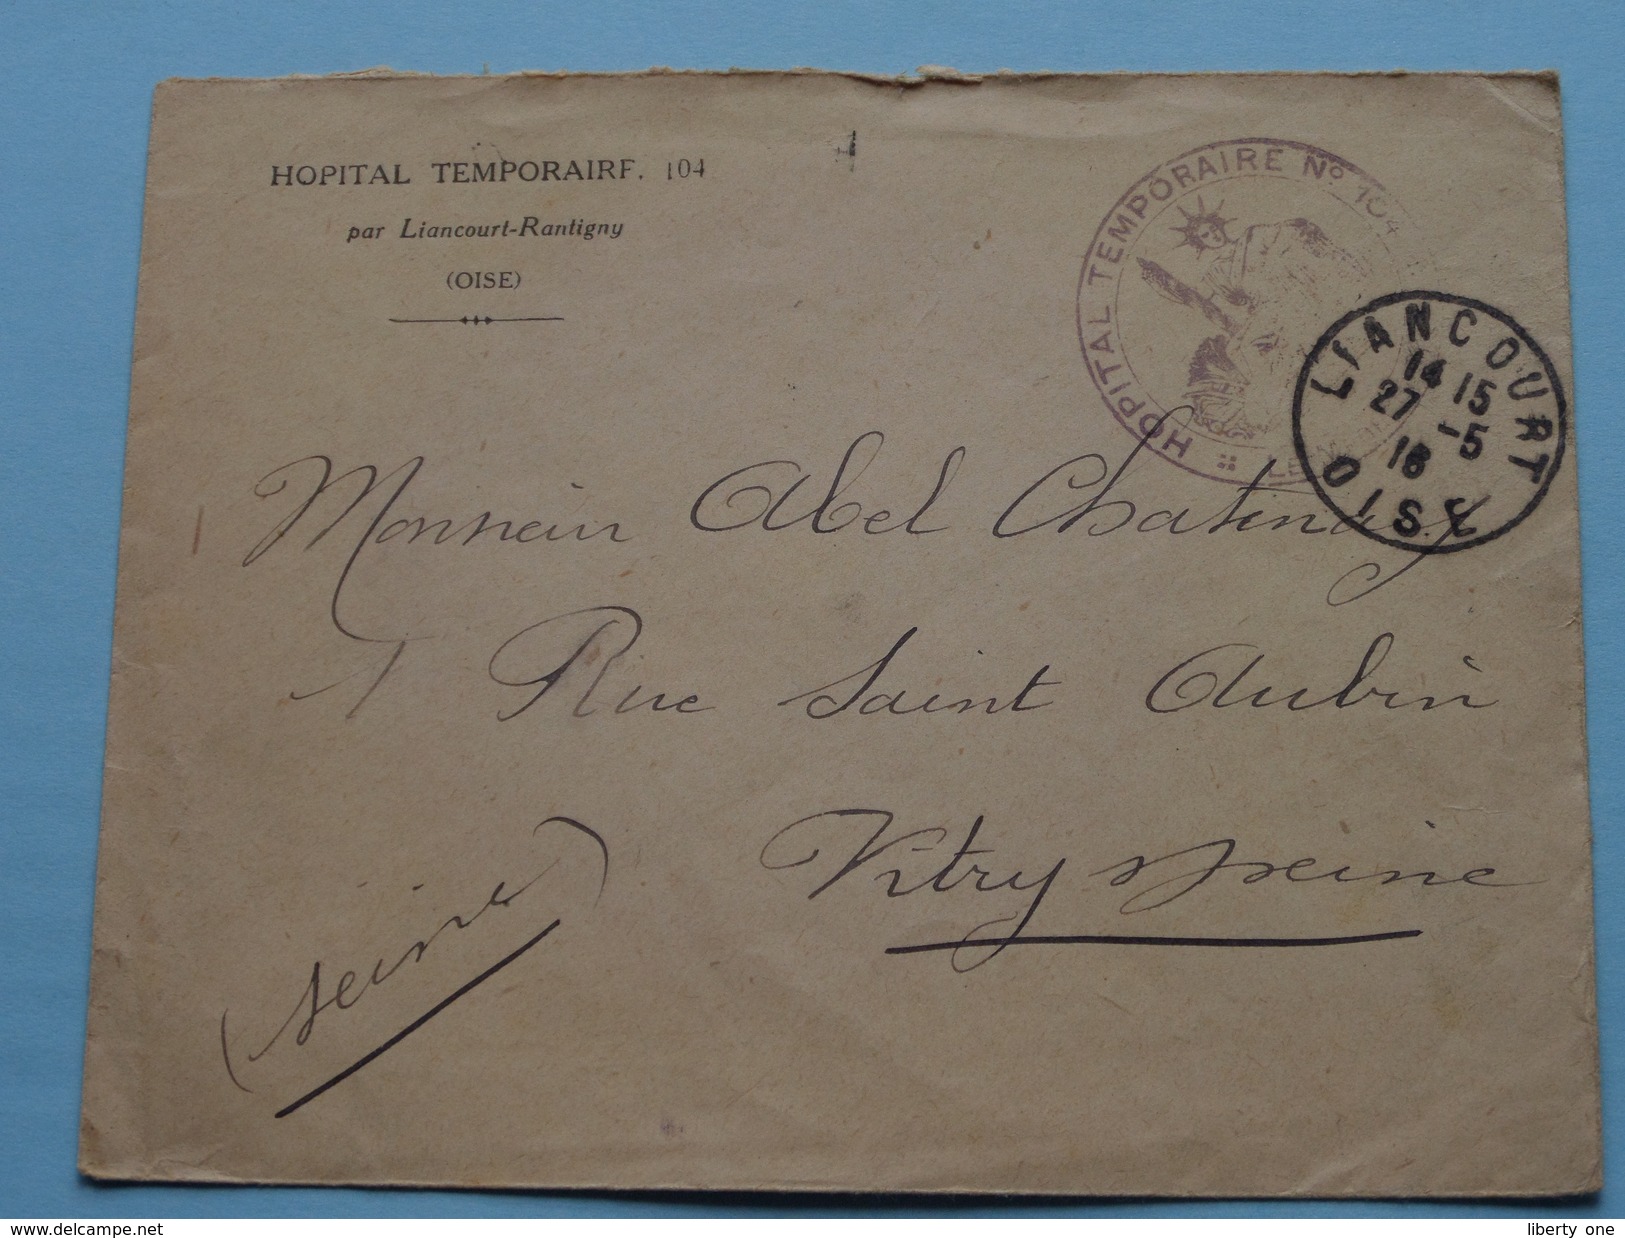 HOPITAL TEMPORAIRE, 104
par Liancourt-Rantigny
(OISE)
HOPITAL TEMPORAIRE No 104
LIANCOURT
14 15
27 -5
16
OISE
Monsieur Abel Chatenay
1 Rue Saint Aubin
Vitry s/ Seine
(Seine)
delcampe.net
liberty one